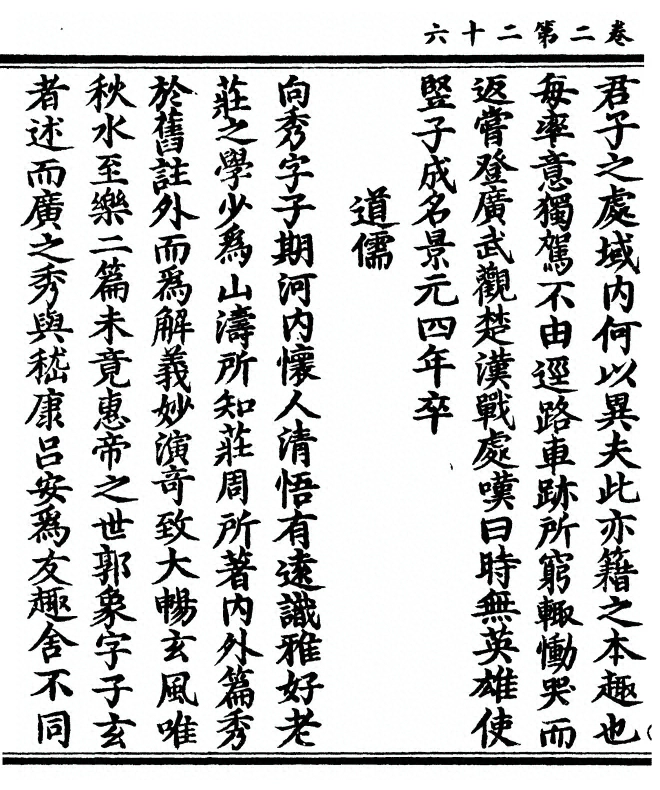 卷二第二十六
君子之處域内何以異夫此亦籍之本趣也
每率意獨駕不由逕路車跡所窮輙慟哭而
返嘗登廣武觀楚漢戰處嘆曰時無英雄使
竪子成名景元四年卒
道儒
向秀字子期河内懷人清悟有遠識雅好老
莊之學少爲山濤所知莊周所著内外篇秀
於舊註外而爲解義妙演竒致大暢玄風唯
秋水至樂二篇未竟惠帝之世郭象字子玄
者述而廣之秀與嵇康吕安爲友趣舍不同